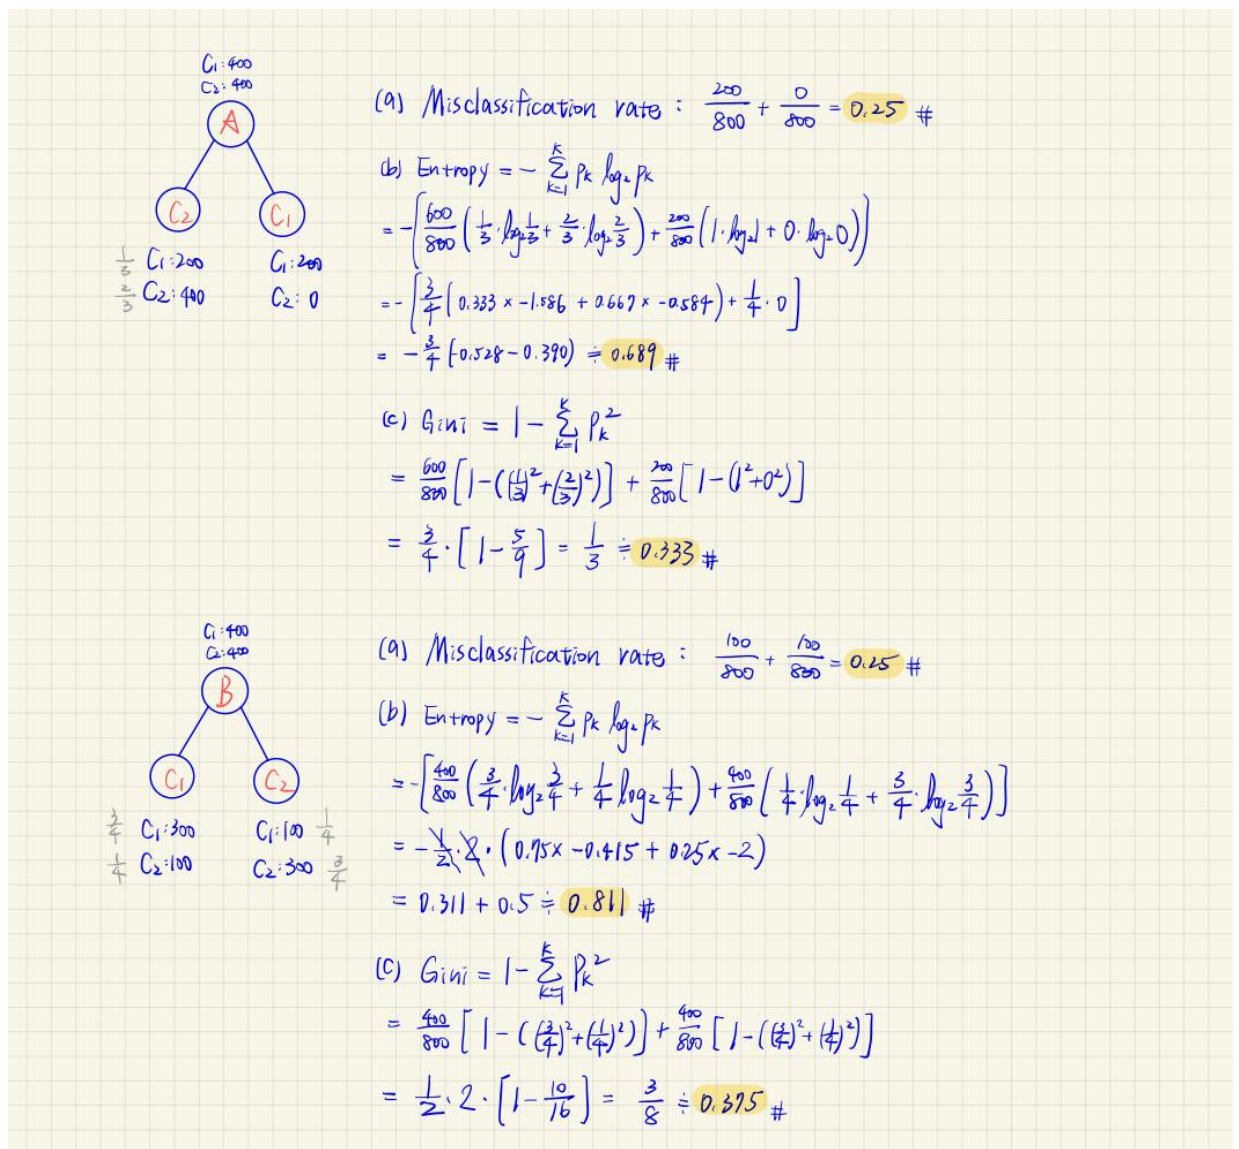 C₁:400
C₂:400
A
C₂ C₁
1/3 C₁:200 C₁:200
2/3 C₂:400 C₂:0
(a) Misclassification rate : 200/800 + 0/800 = 0.25 #
(b) Entropy = - Σ_{k=1}^{K} Pk log₂ Pk
= -[600/800 (1/3·log₂1/3 + 2/3·log₂2/3) + 200/800 (1·log₂1 + 0·log₂0)]
= -[3/4 (0.333 × -1.586 + 0.667 × -0.584) + 1/4·0]
= -3/4 (-0.528 - 0.390) ≑ 0.689 #
(c) Gini = 1 - Σ_{k=1}^{K} Pk²
= 600/800 [1-((1/3)²+(2/3)²)] + 200/800 [1-(1²+0²)]
= 3/4 · [1-5/9] = 1/3 ≑ 0.333 #
C₁:400
C₂:400
B
C₁ C₂
3/4 C₁:300 C₁:100 1/4
1/4 C₂:100 C₂:300 3/4
(a) Misclassification rate : 100/800 + 100/800 = 0.25 #
(b) Entropy = - Σ_{k=1}^{K} Pk log₂ Pk
= -[400/800 (3/4·log₂3/4 + 1/4 log₂1/4) + 400/800 (1/4·log₂1/4 + 3/4·log₂3/4)]
= -1/2·2·(0.75× -0.415 + 0.25× -2)
= 0.311 + 0.5 ≑ 0.811 #
(c) Gini = 1 - Σ_{k=1}^{K} Pk²
= 400/800 [1-((3/4)²+(1/4)²)] + 400/800 [1-((3/4)²+(1/4)²)]
= 1/2·2·[1-10/16] = 3/8 ≑ 0.375 #